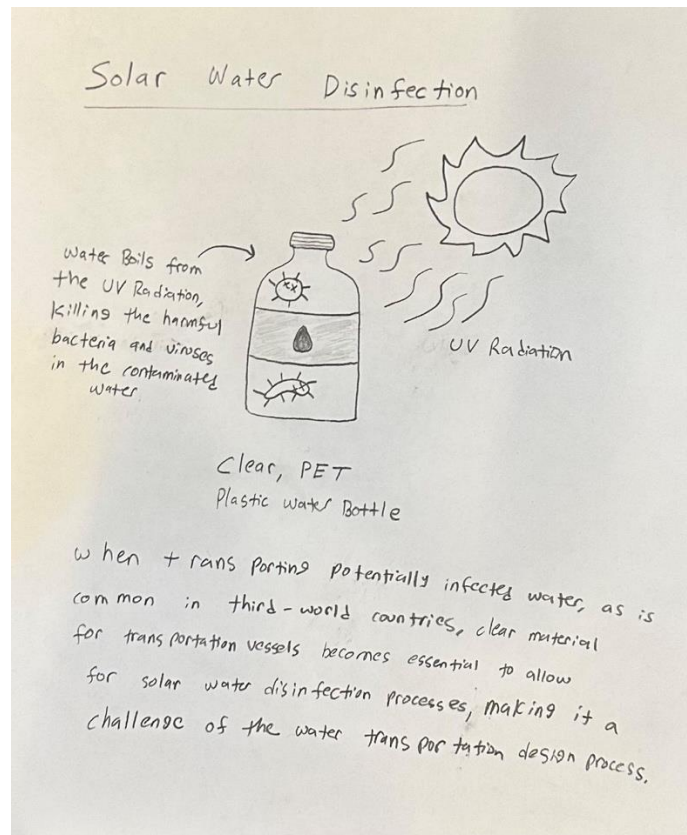 Solar Water Disinfection
Water Boils from
the UV Radiation,
killing the harmful
bacteria and viruses
in the contaminated
water
UV Radiation
Clear, PET
Plastic Water Bottle
When transporting potentially infected water, as is
common in third-world countries, clear material
for transportation vessels becomes essential to allow
for solar water disinfection processes, making it a
challenge of the water transportation design process.